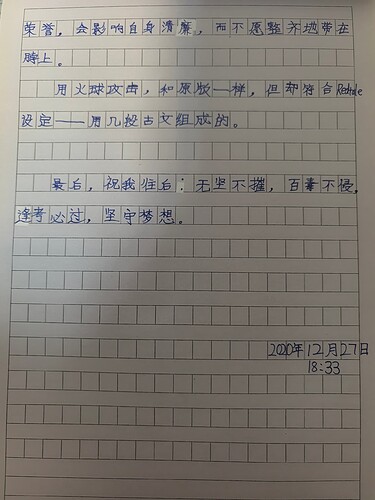 荣誉，会影响自身清廉，而不愿整齐地带在
脖上。
用火球攻击，和原版一样，但却符合
设定——用几段古文组成的。
最后，祝我往后：无坚不摧，百毒不侵，
逢考必过，坚守梦想。
2020年12月27日
18:33